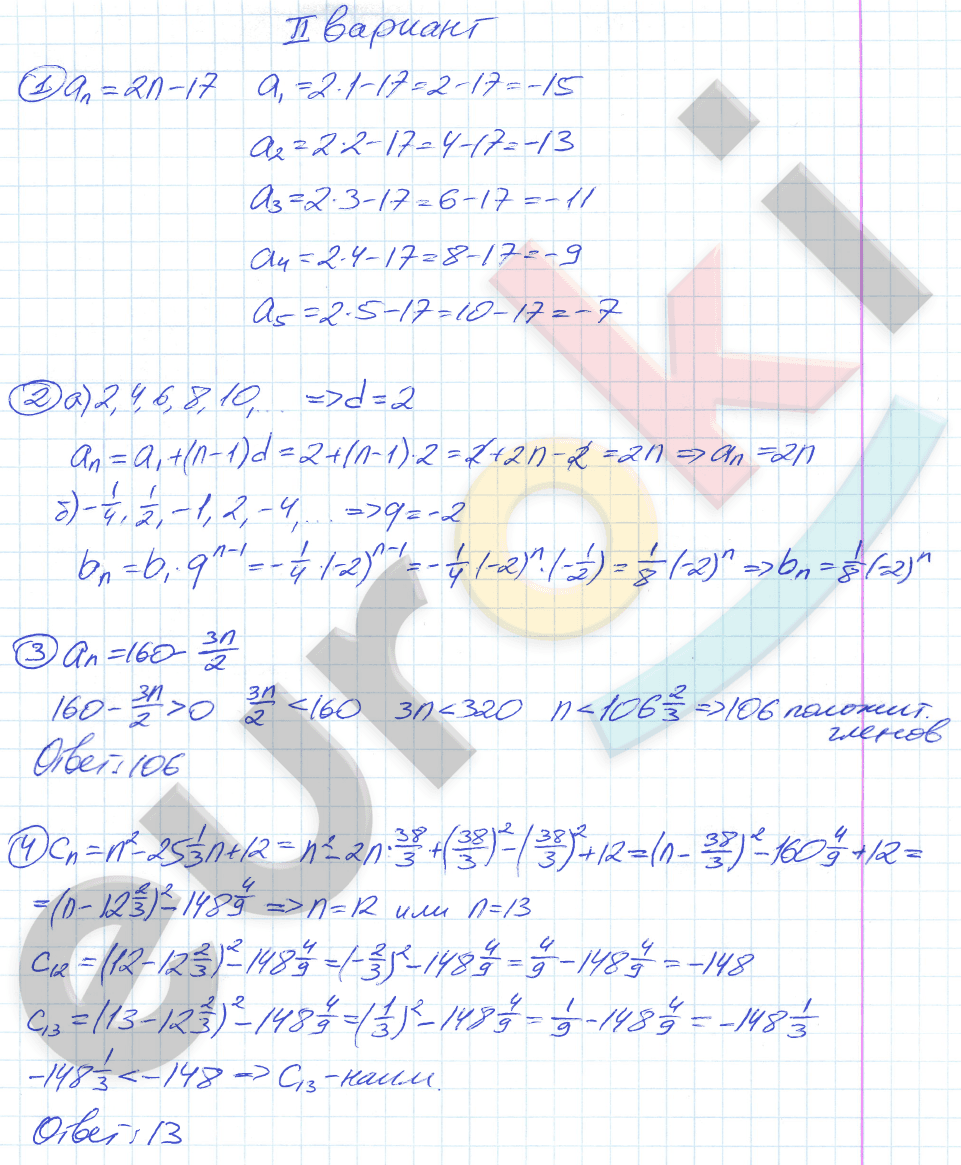 II вариант
① aₙ = 2n − 17   a₁ = 2·1 − 17 = 2 − 17 = −15
a₂ = 2·2 − 17 = 4 − 17 = −13
a₃ = 2·3 − 17 = 6 − 17 = −11
a₄ = 2·4 − 17 = 8 − 17 = −9
a₅ = 2·5 − 17 = 10 − 17 = −7
② а) 2, 4, 6, 8, 10, ... => d = 2
aₙ = a₁ + (n−1)d = 2 + (n−1)·2 = 2 + 2n − 2 = 2n => aₙ = 2n
б) −1/4, 1/2, −1, 2, −4, ... => q = −2
bₙ = b₁·qⁿ⁻¹ = −1/4·(−2)ⁿ⁻¹ = −1/4(−2)ⁿ·(−1/2) = 1/8(−2)ⁿ => bₙ = 1/8(−2)ⁿ
③ aₙ = 160 − 3n/2
160 − 3n/2 > 0   3n/2 < 160   3n < 320   n < 106 2/3 => 106 положит.
членов
Ответ: 106
④ cₙ = n² − 25 1/3 n + 12 = n² − 2n·38/3 + (38/3)² − (38/3)² + 12 = (n − 38/3)² − 160 4/9 + 12 =
= (n − 12 2/3)² − 148 4/9 => n = 12 или n = 13
c₁₂ = (12 − 12 2/3)² − 148 4/9 = (−2/3)² − 148 4/9 = 4/9 − 148 4/9 = −148
c₁₃ = (13 − 12 2/3)² − 148 4/9 = (1/3)² − 148 4/9 = 1/9 − 148 4/9 = −148 1/3
−148 1/3 < −148 => c₁₃ − наим.
Ответ: 13
euroki